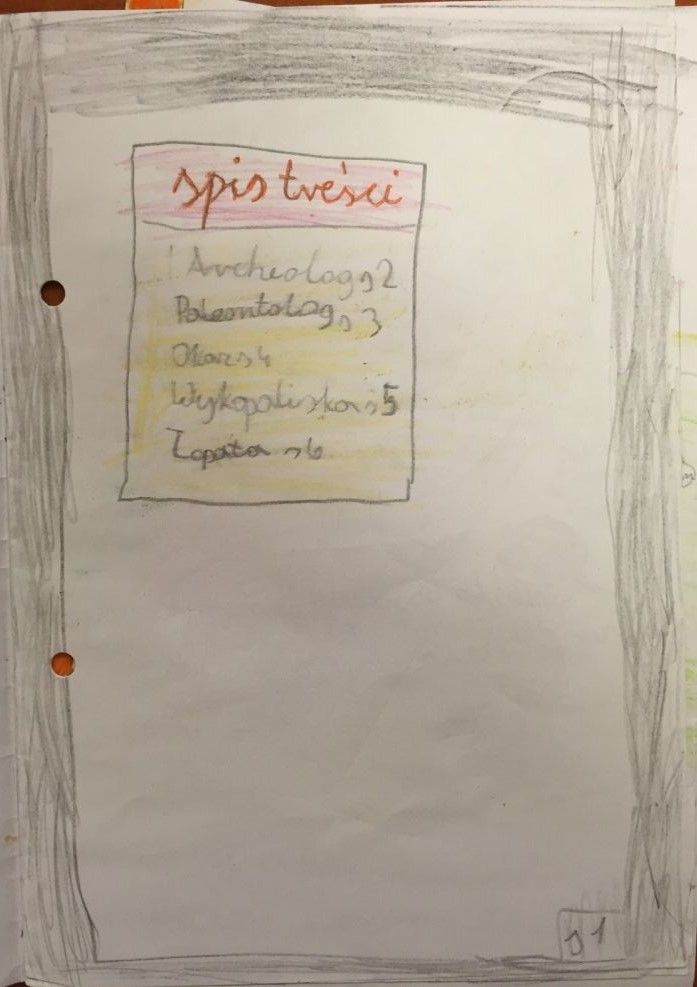 spis treści
Archeolog s 2
Paleontolog s 3
s 4
Wykopaliska s 5
Łopata s 6
s 1